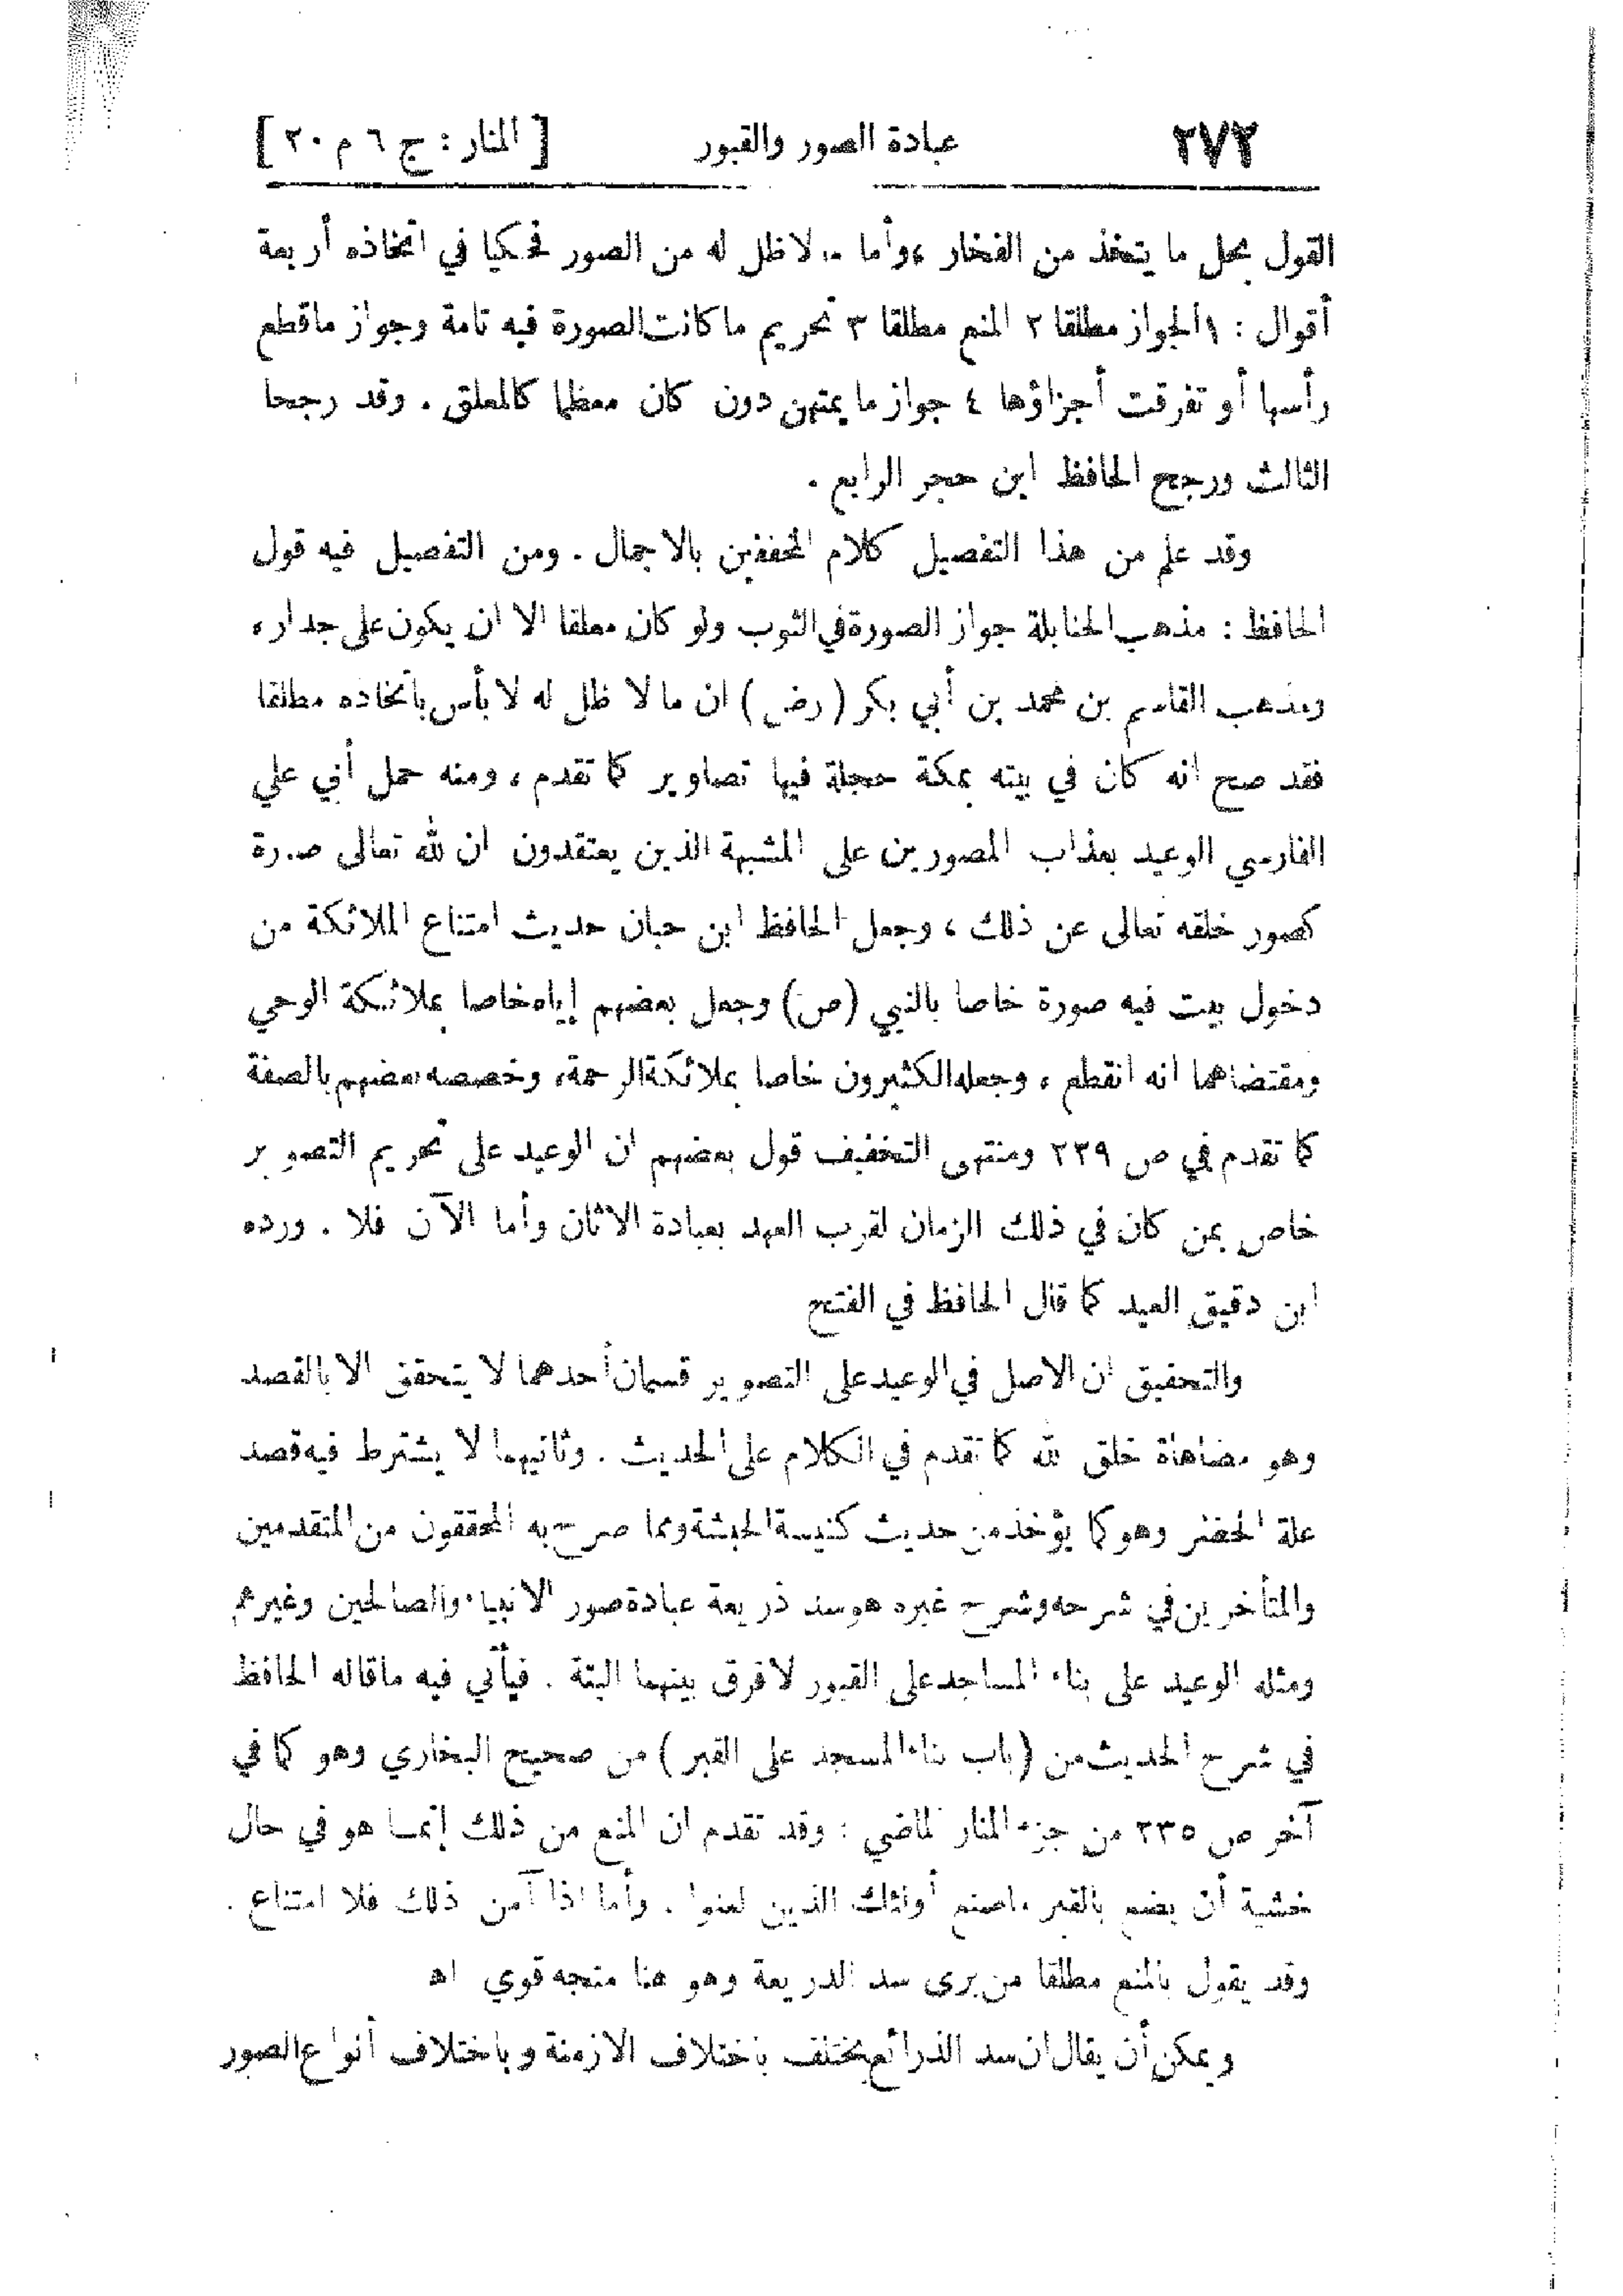 ٢٧٢ عبادة الصور والقبور [ المنار : ج ٦ م ٢٠ ]
القول بحل ما يتخذ من الفخار ، وأما ما لا ظل له من الصور فحكيا في اتخاذه أربعة
أقوال : ١ الجواز مطلقا ٢ المنع مطلقا ٣ تحريم ما كانت الصورة فيه تامة وجواز ما قطع
رأسها أو تفرقت أجزاؤها ٤ جواز ما يمتهن دون كان معظما كالمعلق . وقد رجحا
الثالث ورجح الحافظ ابن حجر الرابع .
وقد علم من هذا التفصيل كلام المخففين بالاجمال . ومن التفصيل فيه قول
الحافظ : مذهب الحنابلة جواز الصورة في الثوب ولو كان معلقا الا ان يكون على جدار ،
ومذهب القاسم بن محمد بن أبي بكر ( رض ) ان ما لا ظل له لا بأس باتخاذه مطلقا
فقد صح انه كان في بيته بمكة حجلة فيها تصاوير كما تقدم ، ومنه حمل أبي علي
الفارسي الوعيد بعذاب المصورين على المشبهة الذين يعتقدون ان لله تعالى صورة
كصور خلقه تعالى عن ذلك ، وجعل الحافظ ابن حبان حديث امتناع الملائكة من
دخول بيت فيه صورة خاصا بالنبي (ص) وجعل بعضهم إياه خاصا بملائكة الوحي
ومقتضاهما انه انقطع ، وجعله الكثيرون خاصا بملائكة الرحمة، وخصصه بعضهم بالصفة
كما تقدم في ص ٢٣٩ ومنتهى التخفيف قول بعضهم ان الوعيد على تحريم التصوير
خاص بمن كان في ذلك الزمان لقرب العهد بعبادة الاثان وأما الآن فلا . ورده
ابن دقيق العيد كما قال الحافظ في الفتح
والتحقيق ان الاصل في الوعيد على التصوير قسمان أحدهما لا يتحقق الا بالقصد
وهو مضاهاة خلق الله كما تقدم في الكلام على الحديث . وثانيهما لا يشترط فيه قصد
علة الحضر وهو كما يؤخذ من حديث كنيسة الحبشة ومما صرح به المحققون من المتقدمين
والمتأخرين في شرحه وشرح غيره هو سد ذريعة عبادة صور الانبياء والصالحين وغيرهم
ومثله الوعيد على بناء المساجد على القبور لا فرق بينهما البتة . فيأتي فيه ما قاله الحافظ
في شرح الحديث من ( باب بناء المسجد على القبر ) من صحيح البخاري وهو كما في
آخر ص ٢٣٥ من جزء المنار الماضي : وقد تقدم ان المنع من ذلك إنما هو في حال
خشية أن يصنع بالقبر ما صنع أولئك الذين لعنوا . وأما اذا آمن ذلك فلا امتناع .
وقد يقول بالمنع مطلقا من يرى سد الذريعة وهو هنا متجه قوي اهـ
ويمكن أن يقال ان سد الذرائع يختلف باختلاف الازمنة وباختلاف أنواع الصور